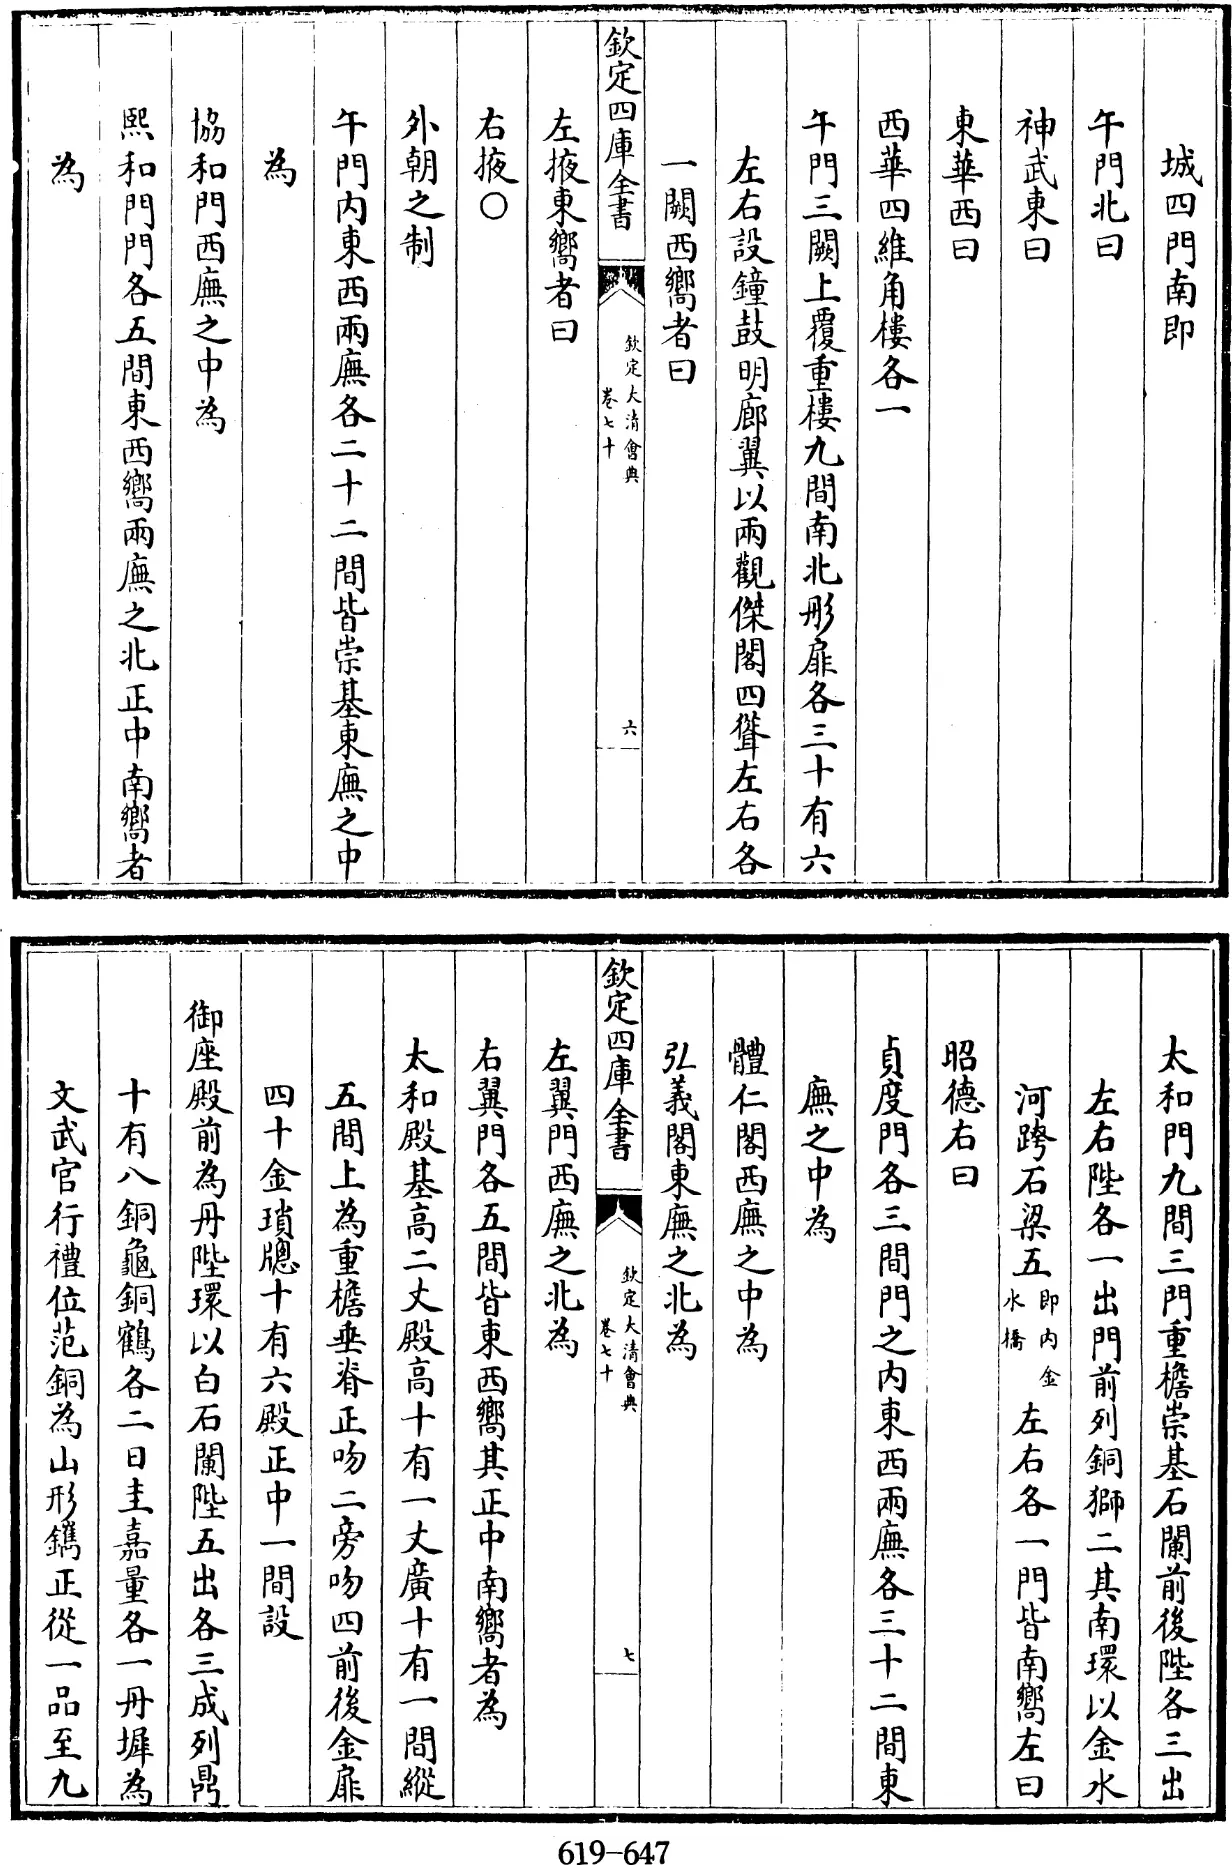 城四門南即
午門北曰
神武東曰
東華西曰
西華四維角樓各一
午門三闕上覆重樓九間南北彤扉各三十有六
左右設鐘鼓明廊翼以兩觀傑閣四聳左右各
一闕西嚮者曰
欽定四庫全書
欽定大清會典
卷七十
六
左掖東嚮者曰
右掖〇
外朝之制
午門内東西兩廡各二十二間皆崇基東廡之中
為
協和門西廡之中為
熙和門門各五間東西嚮兩廡之北正中南嚮者
為
太和門九間三門重檐崇基石闌前後陛各三出
左右陛各一出門前列銅獅二其南環以金水
河跨石梁五即内金水橋左右各一門皆南嚮左曰
昭德右曰
貞度門各三間門之内東西兩廡各三十二間東
廡之中為
體仁閣西廡之中為
弘義閣東廡之北為
欽定四庫全書
欽定大清會典
卷七十
七
左翼門西廡之北為
右翼門各五間皆東西嚮其正中南嚮者為
太和殿基高二丈殿高十有一丈廣十有一間縱
五間上為重檐垂脊正吻二旁吻四前後金扉
四十金瑣牕十有六殿正中一間設
御座殿前為丹陛環以白石闌陛五出各三成列鼎
十有八銅龜銅鶴各二日圭嘉量各一丹墀為
文武官行禮位范銅為山形鐫正從一品至九
619-647